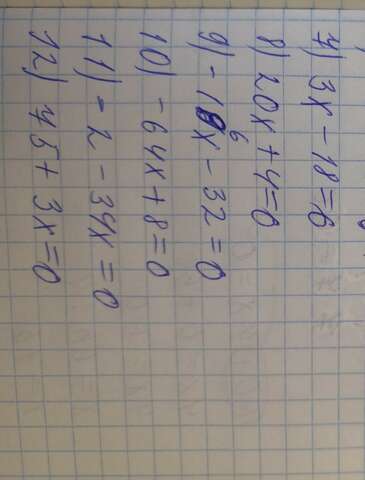 7) 3x - 18 = 6
8) 20x + 4 = 0
9) - 16x - 32 = 0
10) - 64x + 8 = 0
11) - 2 - 34x = 0
12) 45 + 3x = 0